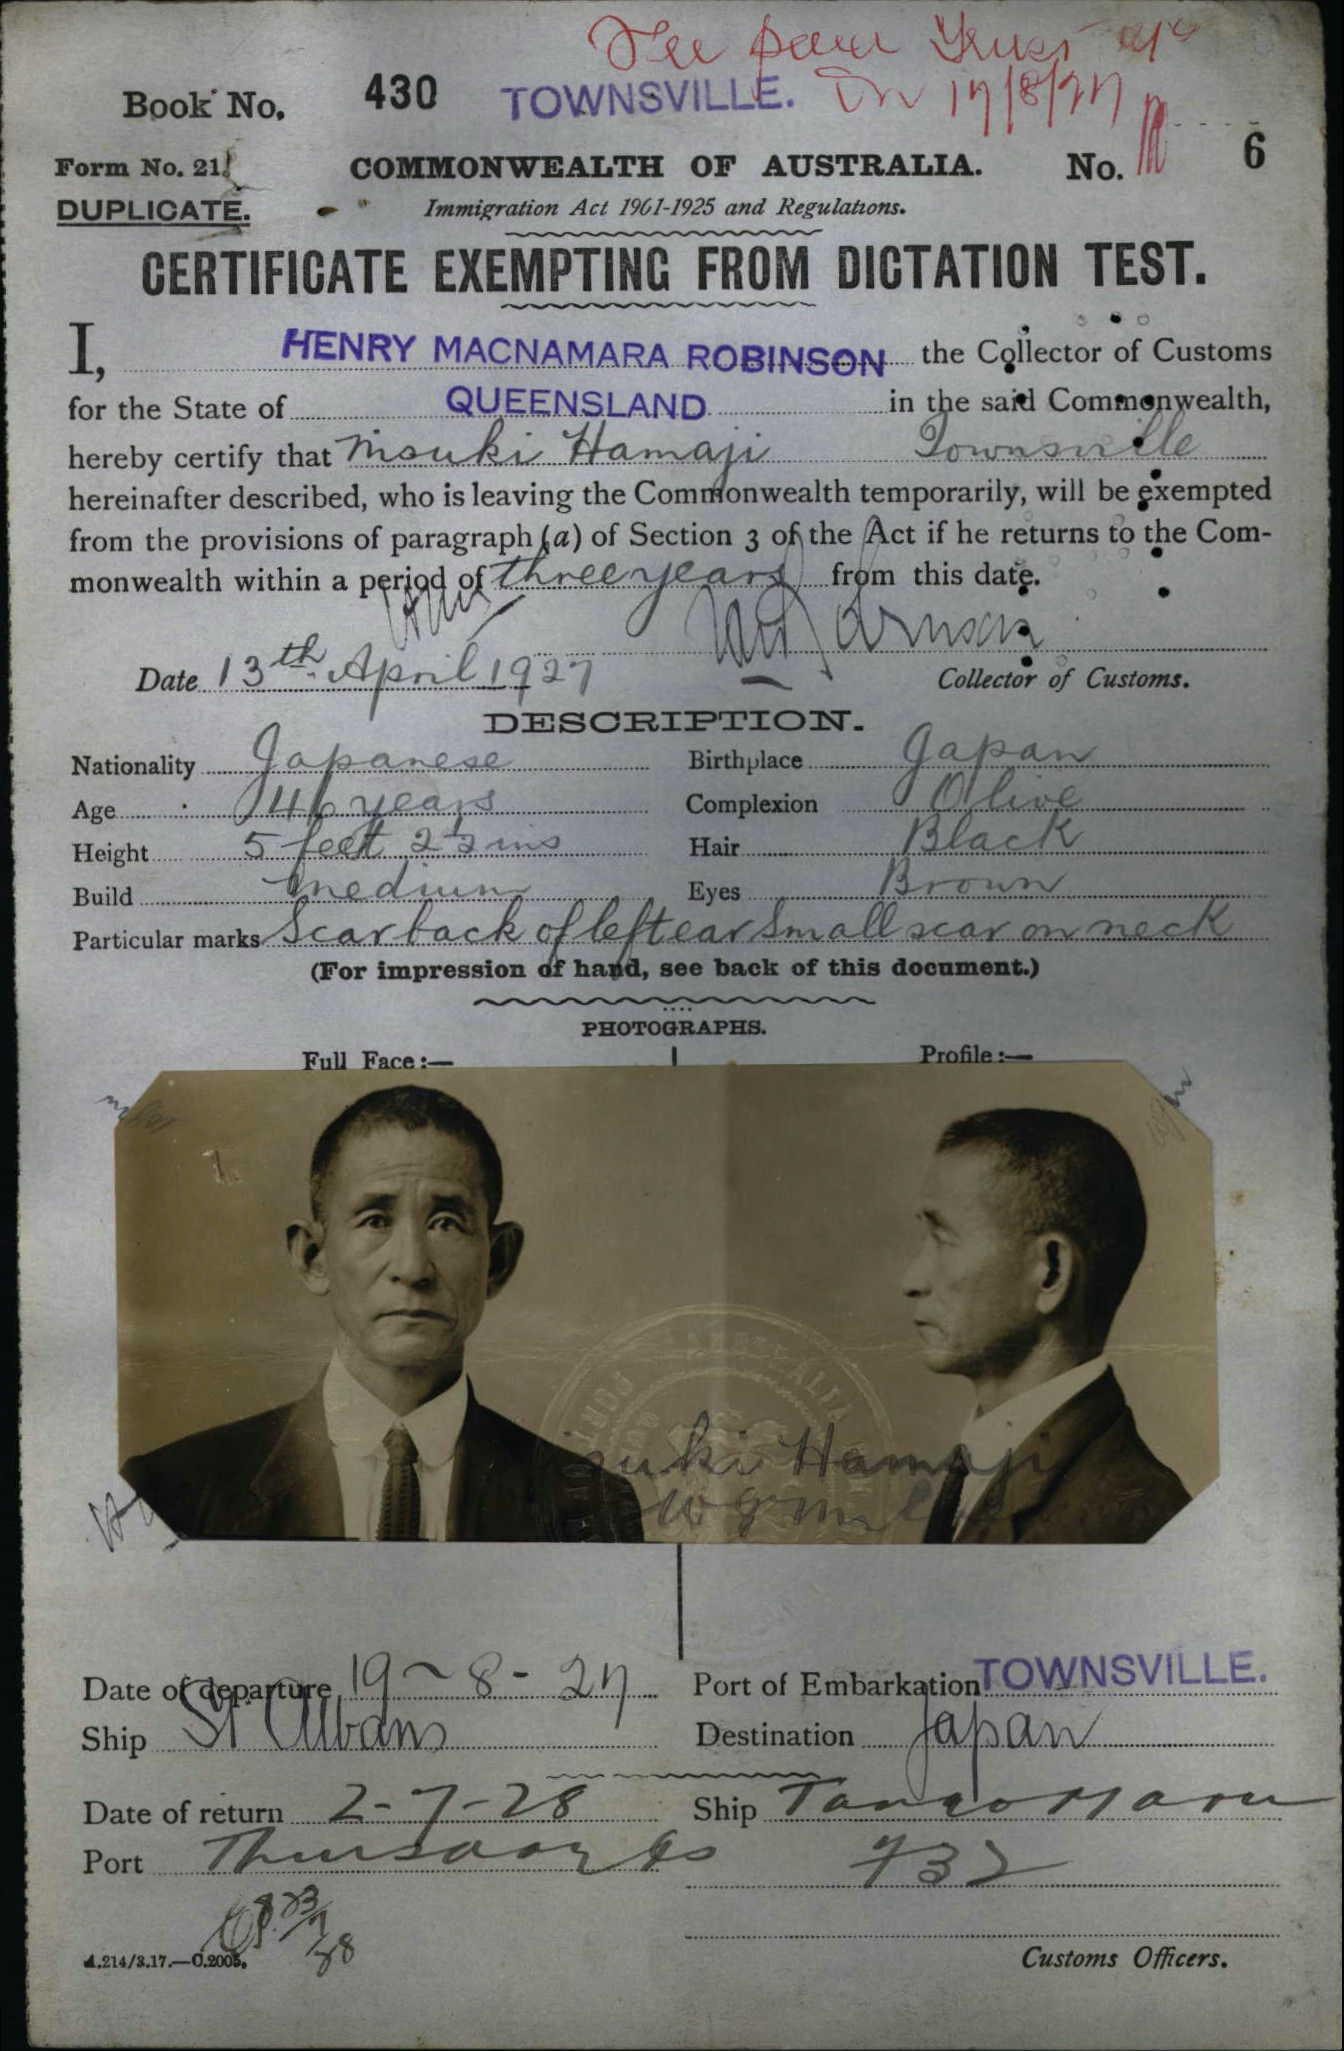 Book No. 430 TOWNSVILLE. 17/8/27
Form No. 21. COMMONWEALTH OF AUSTRALIA. No. 6
DUPLICATE. Immigration Act 1901-1925 and Regulations.
CERTIFICATE EXEMPTING FROM DICTATION TEST.
I, HENRY MACNAMARA ROBINSON the Collector of Customs
for the State of QUEENSLAND in the said Commonwealth,
hereby certify that Misuki Hamaji Townsville
hereinafter described, who is leaving the Commonwealth temporarily, will be exempted
from the provisions of paragraph (a) of Section 3 of the Act if he returns to the Com-
monwealth within a period of three years from this date.
Date 13th April 1927 Collector of Customs.
DESCRIPTION.
Nationality Japanese Birthplace Japan
Age 46 years Complexion Olive
Height 5 feet 2½ ins Hair Black
Build Medium Eyes Brown
Particular marks Scar back of left ear Small scar on neck
(For impression of hand, see back of this document.)
PHOTOGRAPHS.
Full Face:— Profile:—
suki Hamaji
Date of departure 19-8-27 Port of Embarkation TOWNSVILLE.
Ship St Albans Destination Japan
Date of return 2-7-28 Ship Tango Maru
Port Thursday Is 732
23/7/28
A.214/3.17.—C.2005. Customs Officers.